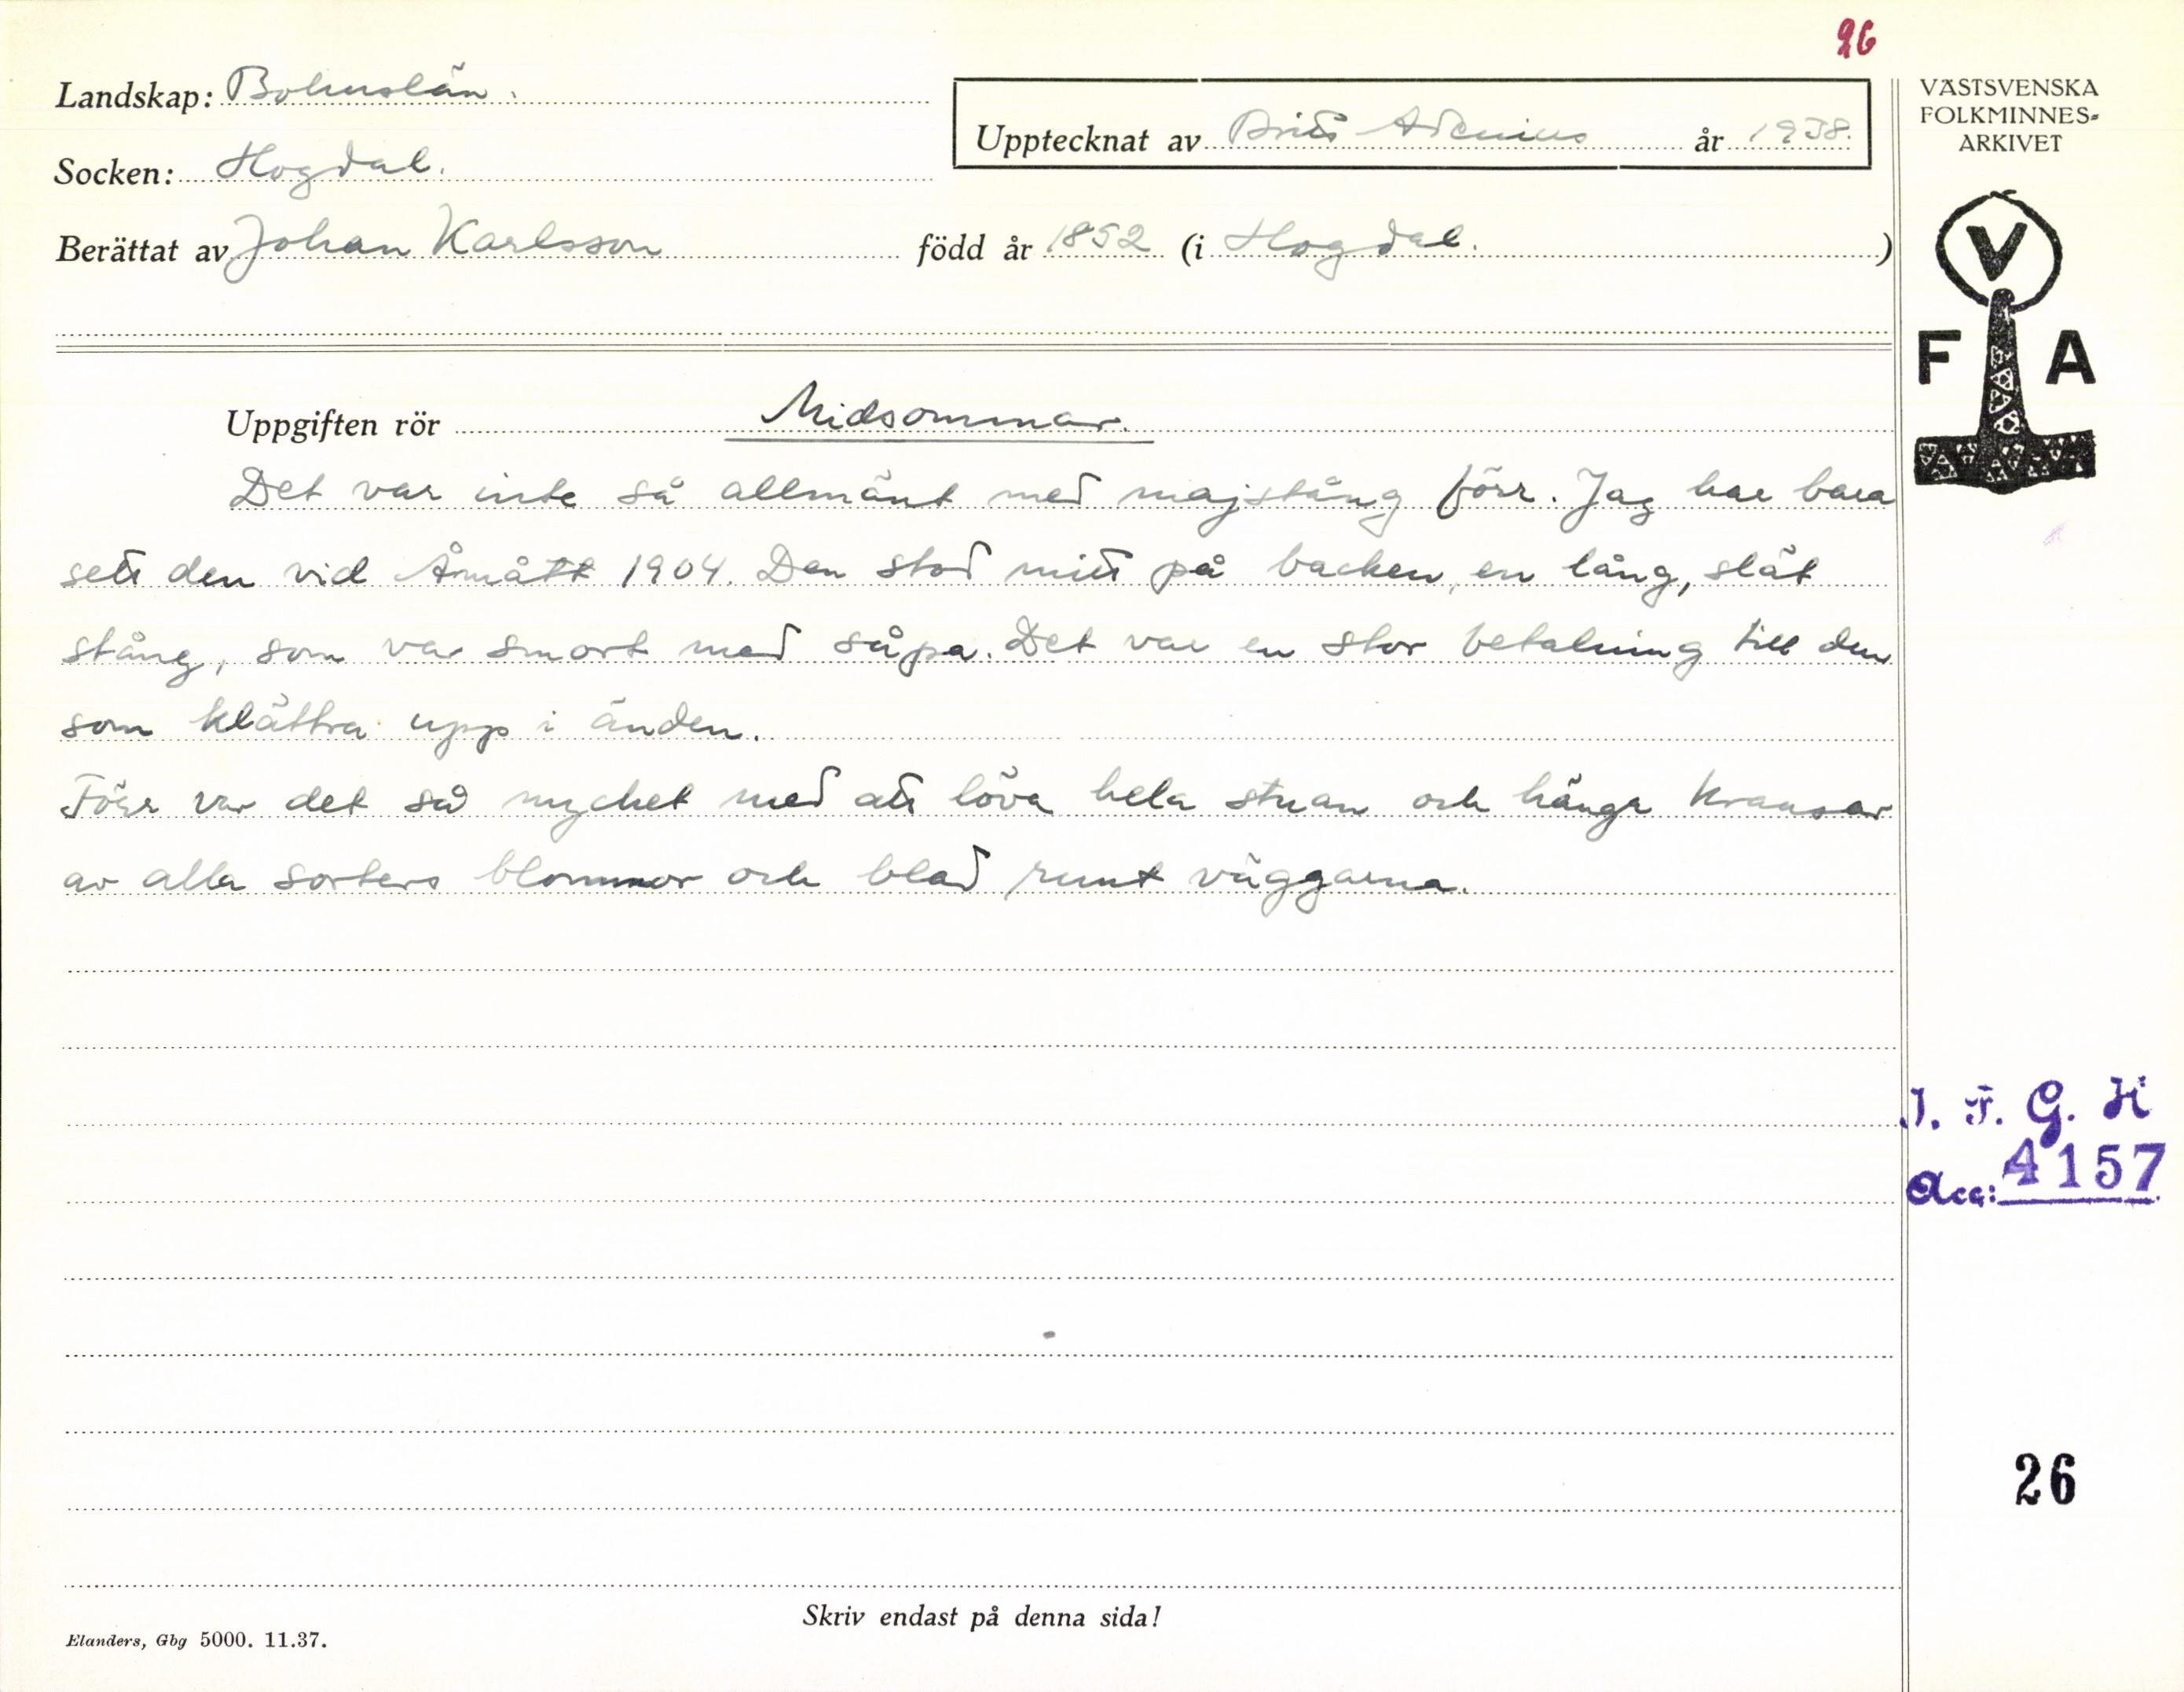 26
Landskap: Bohuslän.
Upptecknat av Britt Adenius år 1938.
Socken: Hogdal.
Berättat av Johan Karlsson född år 1852 (i Hogdal. )
VÄSTSVENSKA
FOLKMINNES-
ARKIVET
V
F A
Uppgiften rör Midsommar.
Det var inte så allmänt med majstång förr. Jag har bara
sett den vid Åmått 1904. Den stod mitt på backen, en lång, slät
stång, som var smort med såpa. Det var en stor betalning till den
som klättra upp i änden.
Förr var det så mycket med att löva hela stuan och hänga kransar
av alla sorters blommor och blad runt väggarna.
I. F. G. H
Acc: 4157
26
Skriv endast på denna sida!
Elanders, Gbg 5000. 11.37.